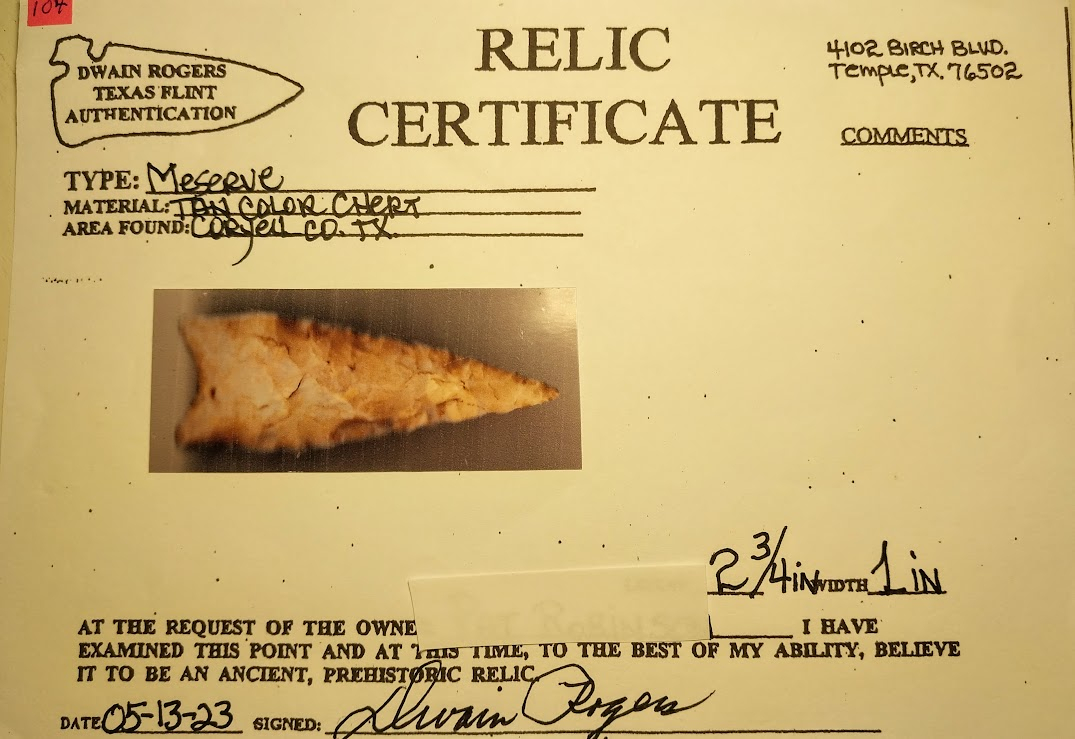 104
DWAIN ROGERS
TEXAS FLINT
AUTHENTICATION
RELIC
CERTIFICATE
4102 BIRCH BLVD.
Temple, TX. 76502
COMMENTS
TYPE: Meserve
MATERIAL: TAN COLOR CHERT
AREA FOUND: CORYELL CO. TX.
2 3/4 in WIDTH 1 in
AT THE REQUEST OF THE OWNE I HAVE
EXAMINED THIS POINT AND AT THIS TIME, TO THE BEST OF MY ABILITY, BELIEVE
IT TO BE AN ANCIENT, PREHISTORIC RELIC.
DATE 05-13-23 SIGNED: Dwain Rogers